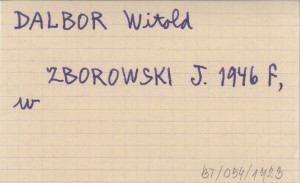 DALBOR Witold
ZBOROWSKI J. 1946 F,
w
67/054/1423